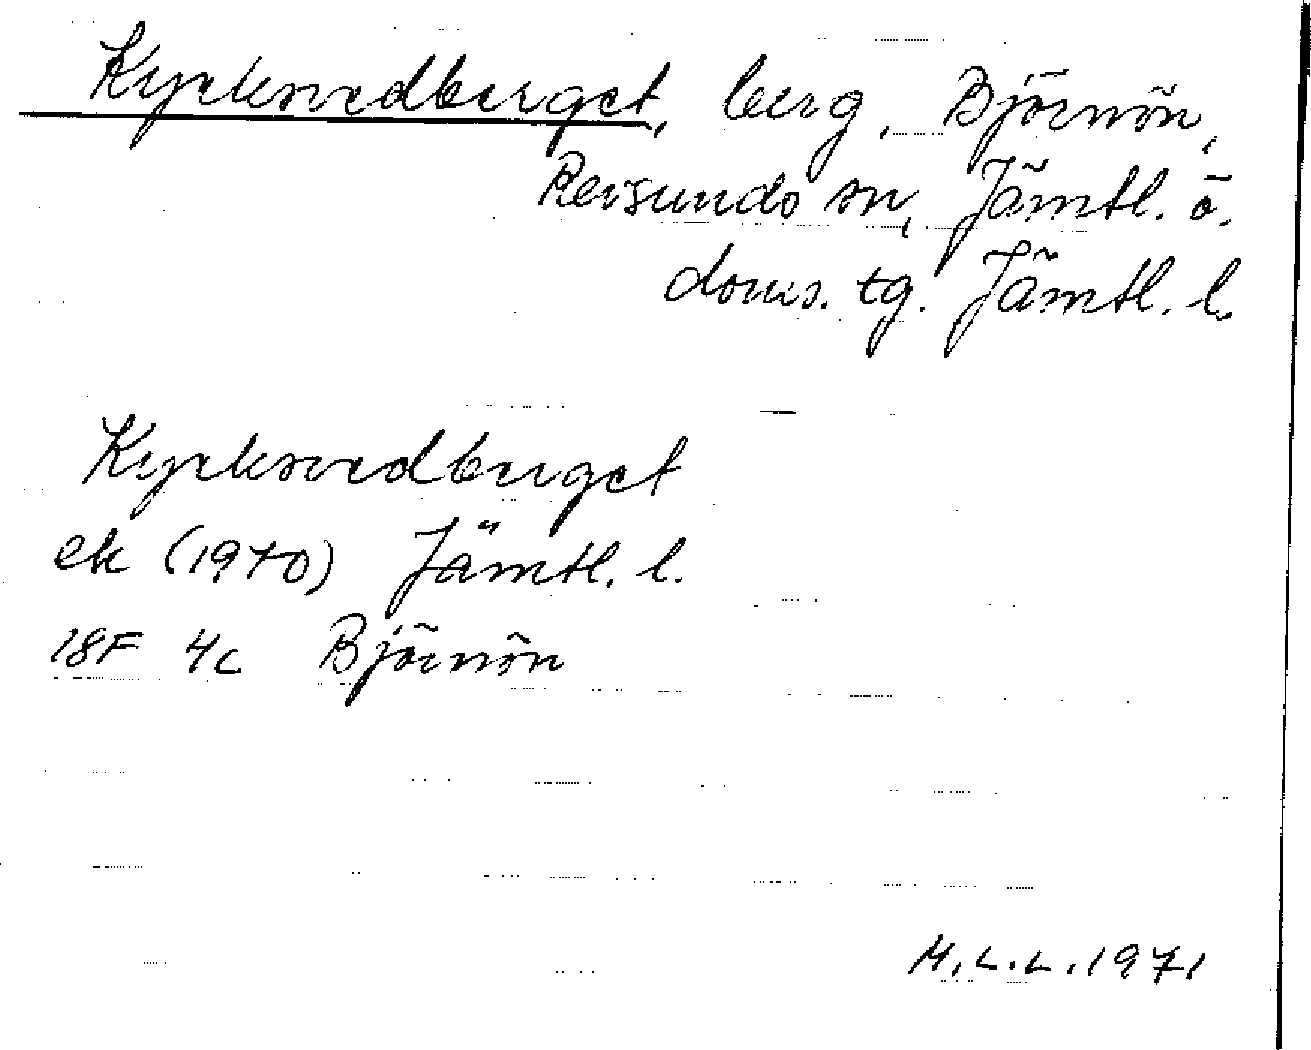 Kyrksvedberget, berg, Björnön,
Revsunds sn, Jämtl. ö.
doms. tg. Jämtl. l.
Kyrksvedberget
ek (1970) Jämtl. l.
18F 4c Björnön
M.L.L. 1971